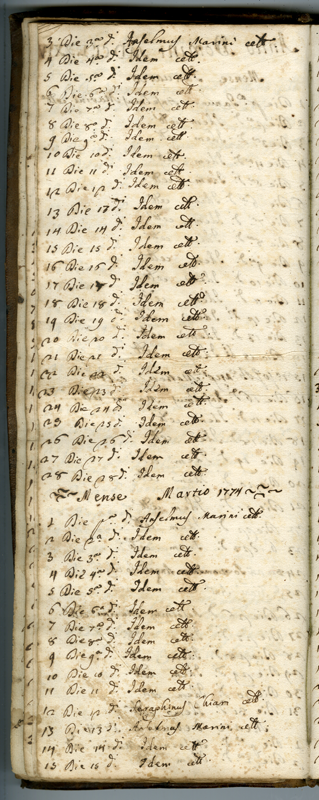 3 Die 3a d. Anselmus Marini cett.
4 Die 4a d. Idem cett.
5 Die 5a d. Idem cett.
6 Die 6a d. Idem cett.
7 Die 7a d. Idem cett.
8 Die 8a d. Idem cett.
9 Die 9a d. Idem cett.
10 Die 10 d. Idem cett.
11 Die 11 d. Idem cett.
12 Die 12 d. Idem cett.
13 Die 13 d. Idem cett.
14 Die 14 d. Idem cett.
15 Die 15 d. Idem cett.
16 Die 16 d. Idem cett.
17 Die 17 d. Idem cett.
18 Die 18 d. Idem cett.
19 Die 19 d. Idem cett.
20 Die 20 d. Idem cett.
21 Die 21 d. Idem cett.
22 Die 22 d. Idem cett.
23 Die 23 d. Idem cett.
24 Die 24 d. Idem cett.
25 Die 25 d. Idem cett.
26 Die 26 d. Idem cett.
27 Die 27 d. Idem cett.
28 Die 28 d. Idem cett.
Mense Martio 1774
1 Die pa d. Anselmus Marini cett.
2 Die 2a d. Idem cett.
3 Die 3a d. Idem cett.
4 Die 4a d. Idem cett.
5 Die 5a d. Idem cett.
6 Die 6a d. Idem cett.
7 Die 7a d. Idem cett.
8 Die 8a d. Idem cett.
9 Die 9a d. Idem cett.
10 Die 10 d. Idem cett.
11 Die 11 d. Idem cett.
12 Die 12 d. Seraphinus Chiari cett.
13 Die 13 d. Anselmus Marini cett.
14 Die 14 d. Idem cett.
15 Die 15 d. Idem cett.